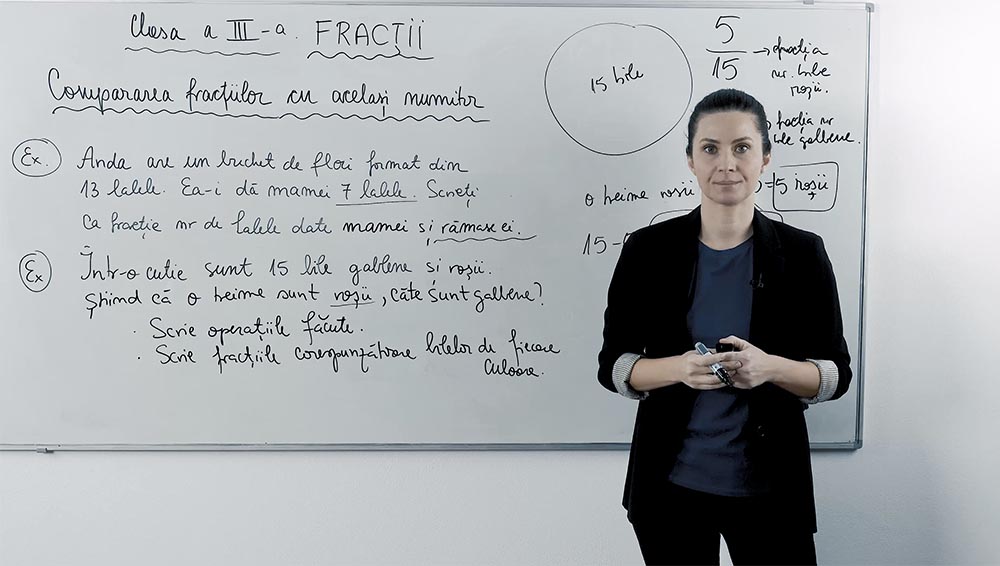 Clasa a III-a. FRACȚII
Compararea fracțiilor cu același numitor
Ex. Anda are un buchet de flori format din
13 lalele. Ea-i dă mamei 7 lalele. Scrieți
ca fracție nr de lalele date mamei și rămase ei.
Ex Într-o cutie sunt 15 bile gablene și roșii.
Știind că o treime sunt roșii, câte sunt galbene?
· Scrie operațiile făcute.
· Scrie fracțiile corespunzătoare bilelor de fiecare
culoare.
15 bile
5
15
fracția
nr. bile
roșii.
fracția nr
bile galbene.
o treime roșii =5 roșii
15-